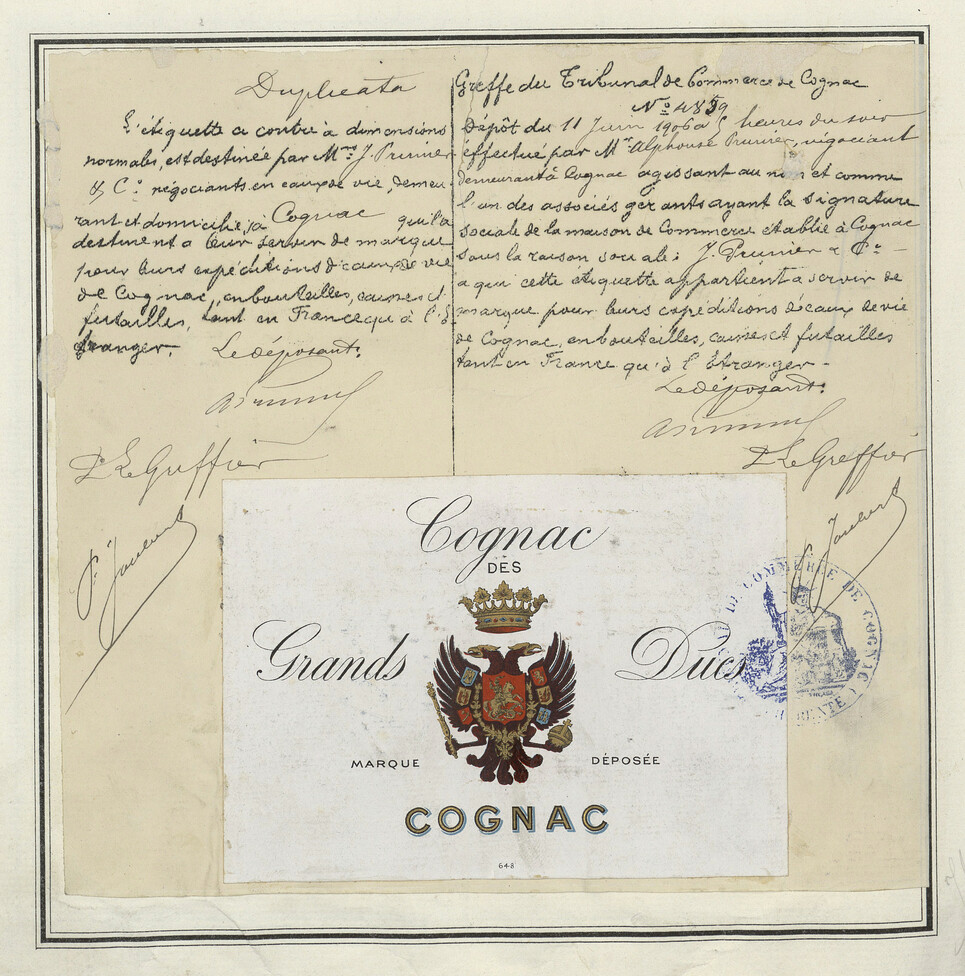 Duplicata
L'étiquette ci contre à dimensions
normales, est destinée par Mrs J. Prunier
& Co négociants en eaux de vie, demeu-
rant et domiciliés à Cognac qu'ils
destinent a leur servir de marque
pour leurs expéditions d'eaux de vie
de Cognac, en bouteilles, caisses et
futailles, tant en France qu'à l'é-
tranger.
Le déposant:
P. Le Greffier
Greffe du Tribunal de Commerce de Cognac
No 4859
Dépôt du 11 Juin 1906 à 5 heures du soir
éffectué par Mr Alphonse Prunier, négociant
demeurant à Cognac agissant au nom et comme
l'un des associés gérants ayant la signature
sociale de la maison de Commerce établie à Cognac
sous la raison sociale: J. Prunier & Co -
a qui cette étiquette appartient a servir de
marque pour leurs expéditions d'eaux de vie
de Cognac, en bouteilles, caisses et futailles
tant en France qu'à l'étranger -
Le déposant:
P. Le Greffier
Cognac
DES
Grands Ducs
MARQUE DÉPOSÉE
COGNAC
648
DE COMMERCE DE COGNAC